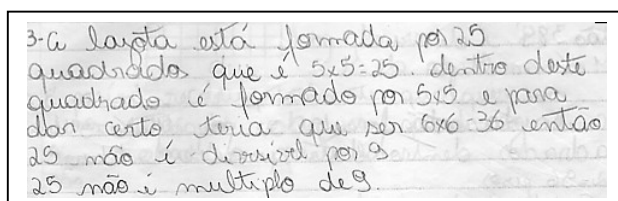 3-a lajota está formada por 25
quadrados que é 5x5=25. dentro deste
quadrado é formado por 5x5 e para
dar certo teria que ser 6x6=36 então
25 não é divisível por 9
25 não é multiplo de 9.